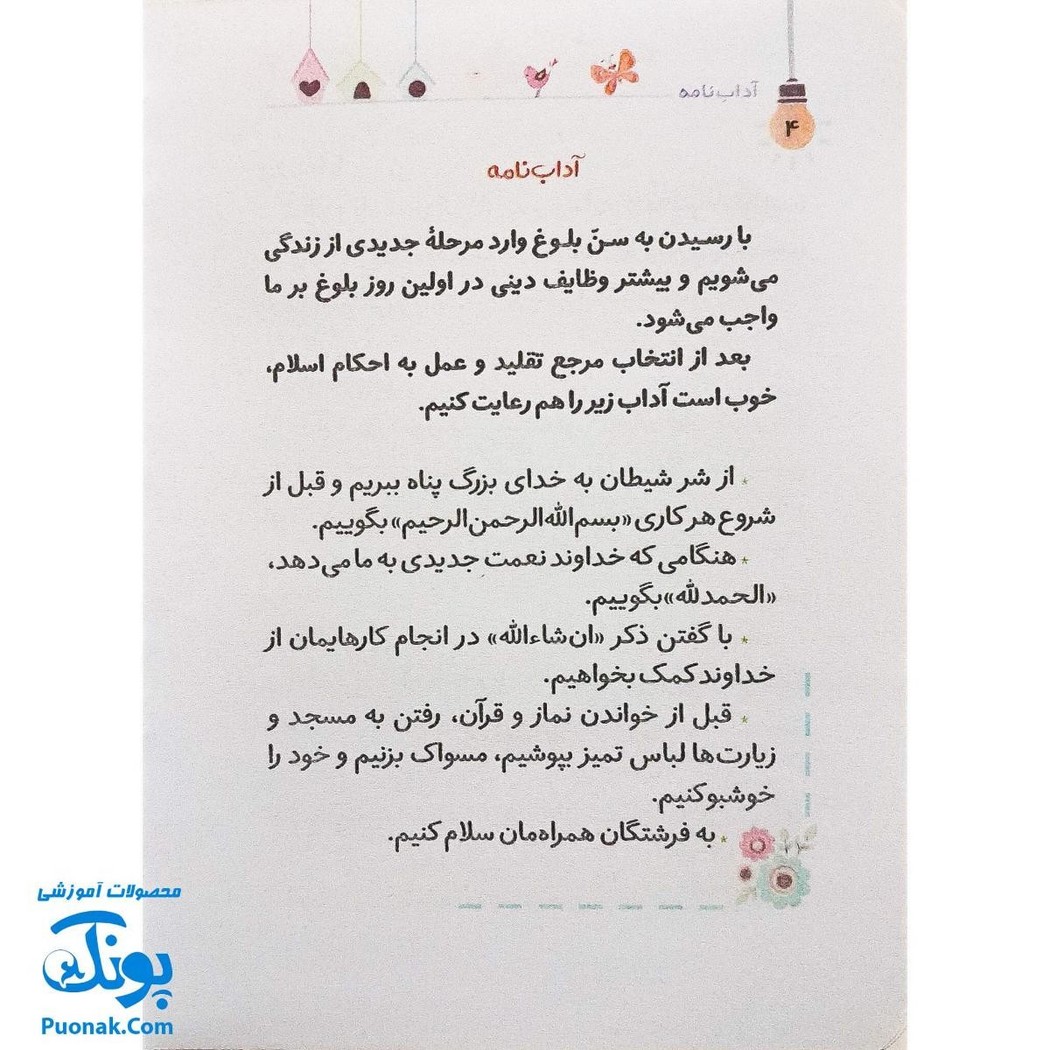 آداب‌نامه
۴
آداب‌نامه
با رسیدن به سنّ بلوغ وارد مرحلهٔ جدیدی از زندگی
می‌شویم و بیشتر وظایف دینی در اولین روز بلوغ بر ما
واجب می‌شود.
بعد از انتخاب مرجع تقلید و عمل به احکام اسلام،
خوب است آداب زیر را هم رعایت کنیم.
* از شر شیطان به خدای بزرگ پناه ببریم و قبل از
شروع هر کاری «بسم‌الله‌الرحمن‌الرحیم» بگوییم.
* هنگامی که خداوند نعمت جدیدی به ما می‌دهد،
«الحمدلله» بگوییم.
* با گفتن ذکر «ان‌شاءالله» در انجام کارهایمان از
خداوند کمک بخواهیم.
* قبل از خواندن نماز و قرآن، رفتن به مسجد و
زیارت‌ها لباس تمیز بپوشیم، مسواک بزنیم و خود را
خوشبو کنیم.
* به فرشتگان همراه‌مان سلام کنیم.
محصولات آموزشی
پونک
Puonak.Com